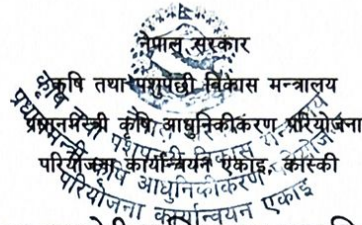 नेपाल सरकार
कृषि तथा पशुपंछी विकास मन्त्रालय
प्रधानमन्त्री कृषि आधुनिकीकरण परियोजना
परियोजना कार्यान्वयन एकाई, कास्की
कृषि तथा पशुपंछी विकास मन्त्रालय
प्रधानमन्त्री कृषि आधुनिकीकरण परियोजना
परियोजना कार्यान्वयन एकाइ